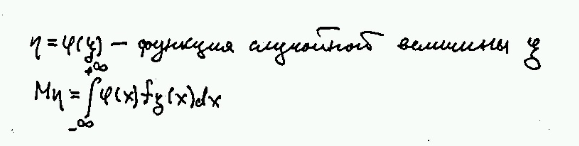 η = φ(ξ) — функция случайной величины ξ
Mη = ∫_{-∞}^{+∞} φ(x) f_ξ(x) dx